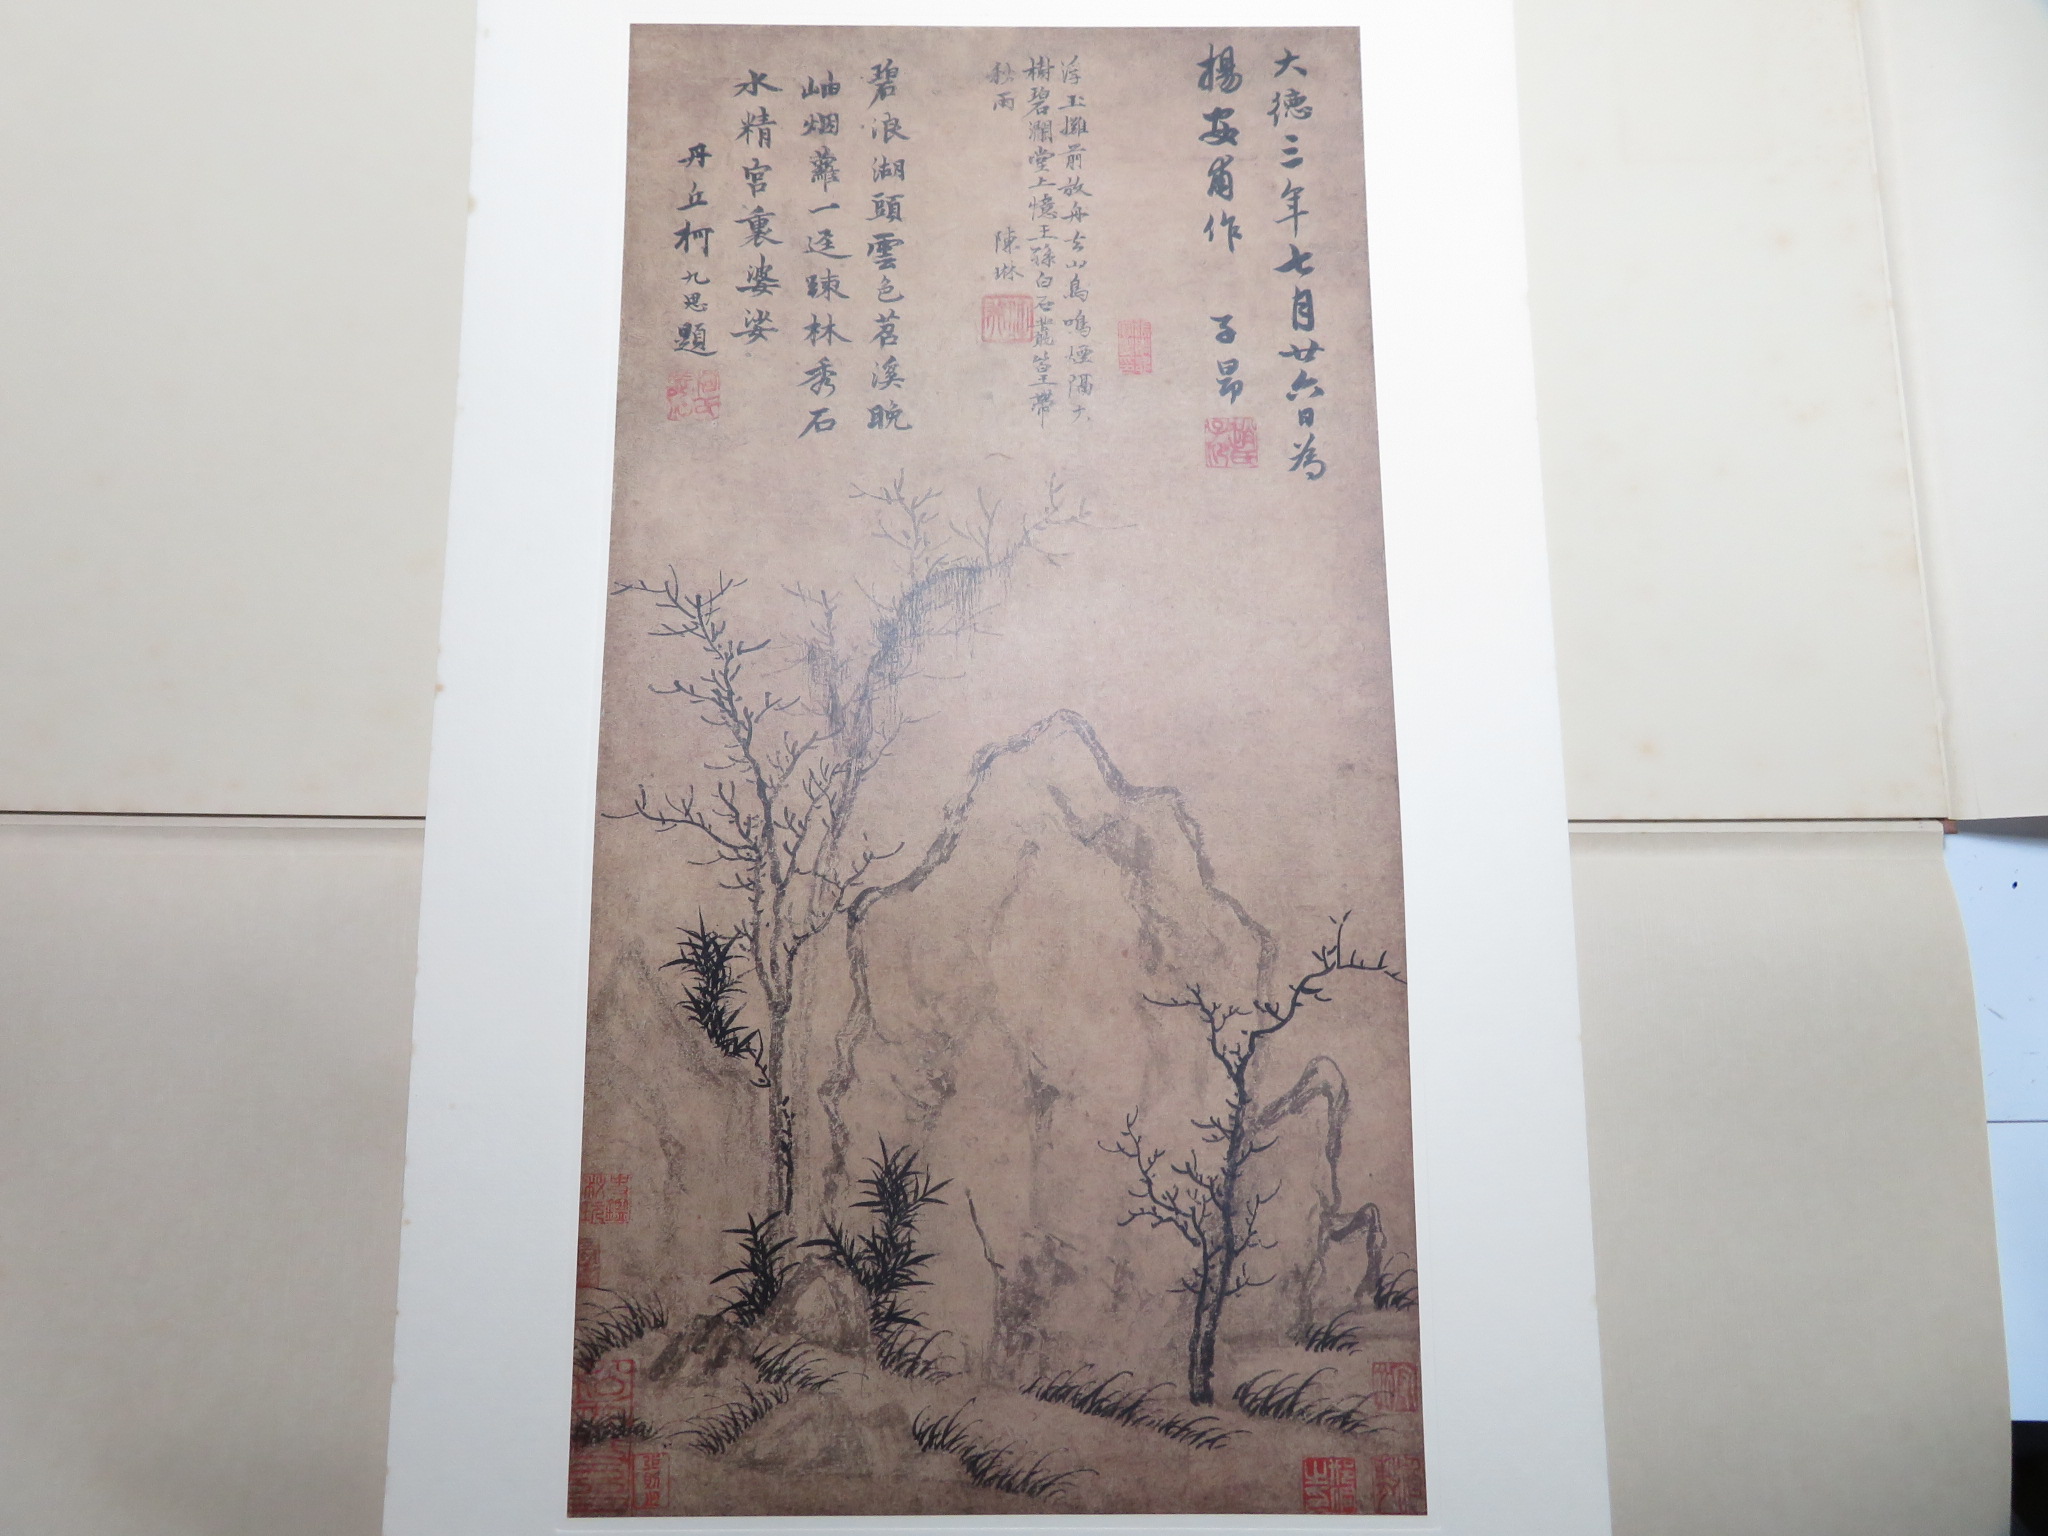 大德三年七月廿六日為
楊安甫作　子昂
浮玉攤前放舟去山鳥鳴煙隔大
樹碧瀾堂上憶王孫白石叢篁帶
秋雨　陳琳
碧浪湖頭雲色苕溪晚
岫烟蘿一逕踈林秀石
水精宮裏婆娑
丹丘柯九思題